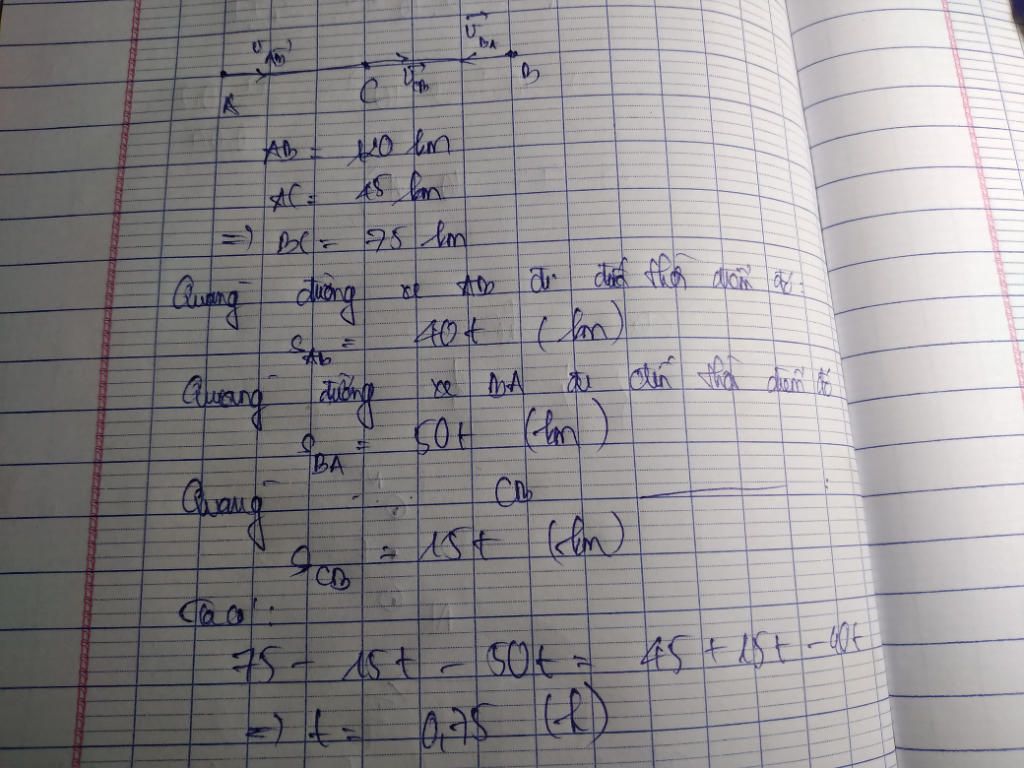 v AB v BA
A C v CB B
AB = 120 km
AC = 45 km
=> BC = 75 km
Quãng đường xe AB đi đến thời điểm đó:
S AB = 40t (km)
Quãng đường xe BA đi đến thời điểm đó
S BA = 50t (km)
Quãng ..... CB ——— :
S CB = 15t (km)
Ta có:
75 - 15t - 50t = 45 + 15t - 40t
=> t = 0,75 (h)